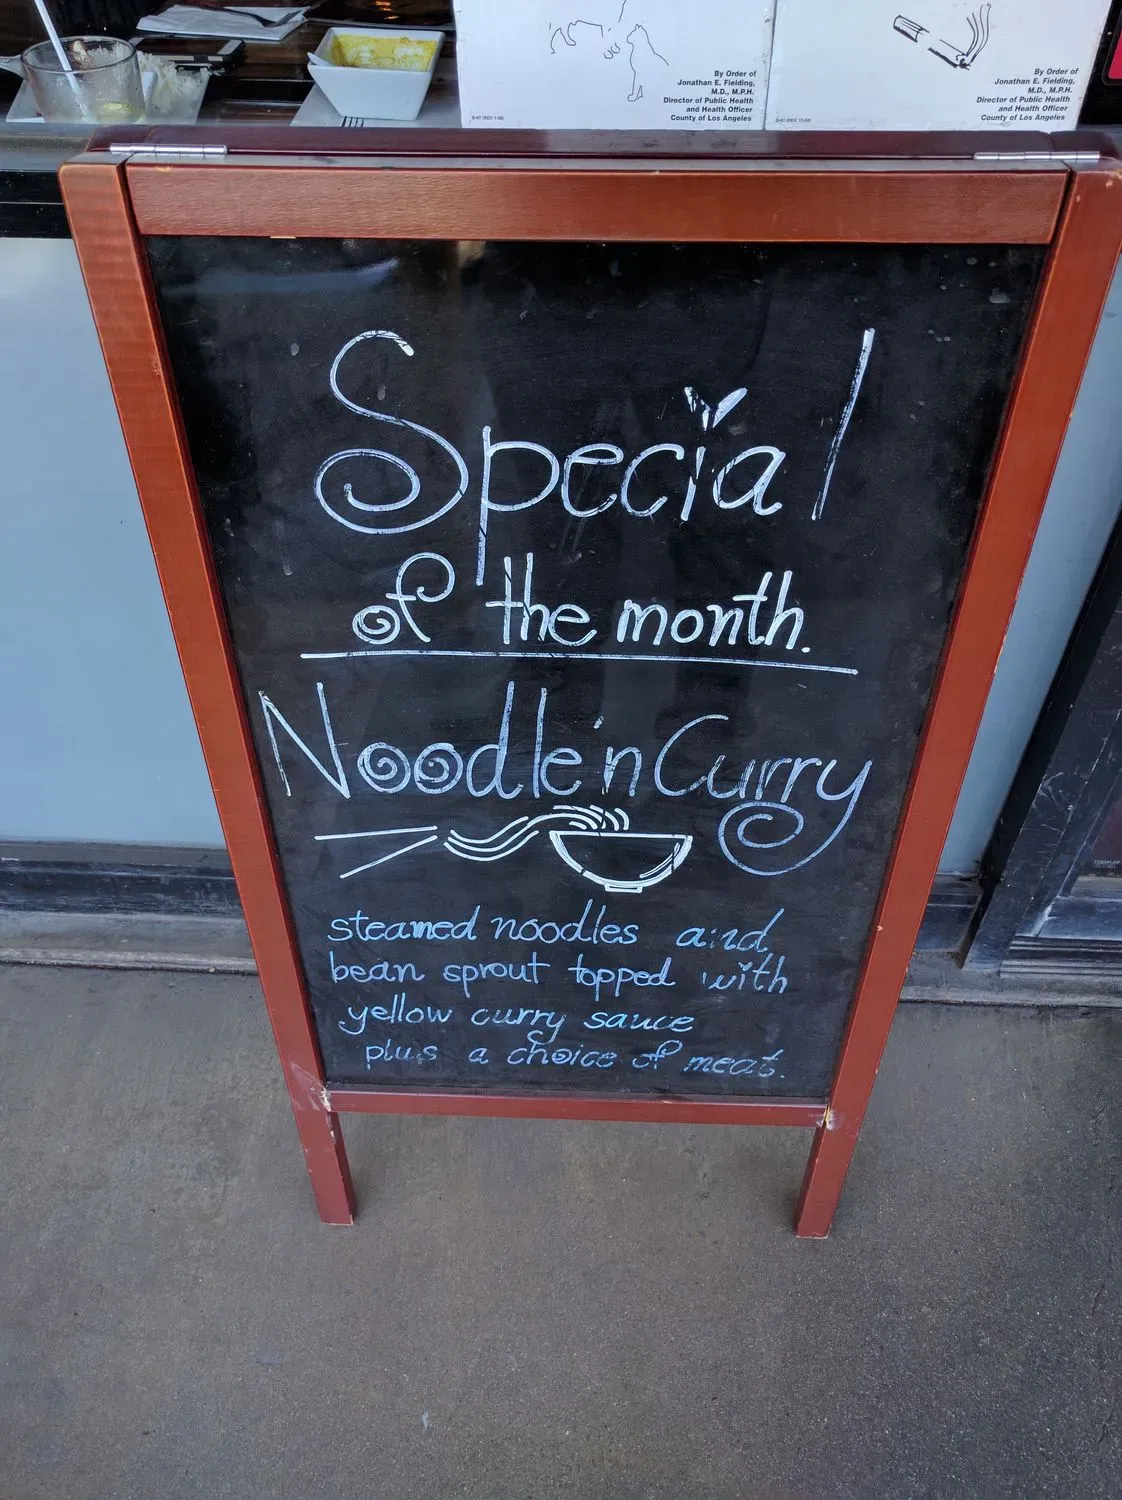 By Order of
Jonathan E. Fielding,
M.D., M.P.H.
Director of Public Health
and Health Officer
County of Los Angeles
By Order of
Jonathan E. Fielding,
M.D., M.P.H.
Director of Public Health
and Health Officer
County of Los Angeles
Special
of the month.
Noodle'n Curry
steamed noodles and
bean sprout topped with
yellow curry sauce
plus a choice of meat.